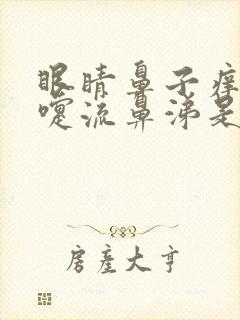 眼睛鼻子痒
嚏流鼻涕是
房产大亨